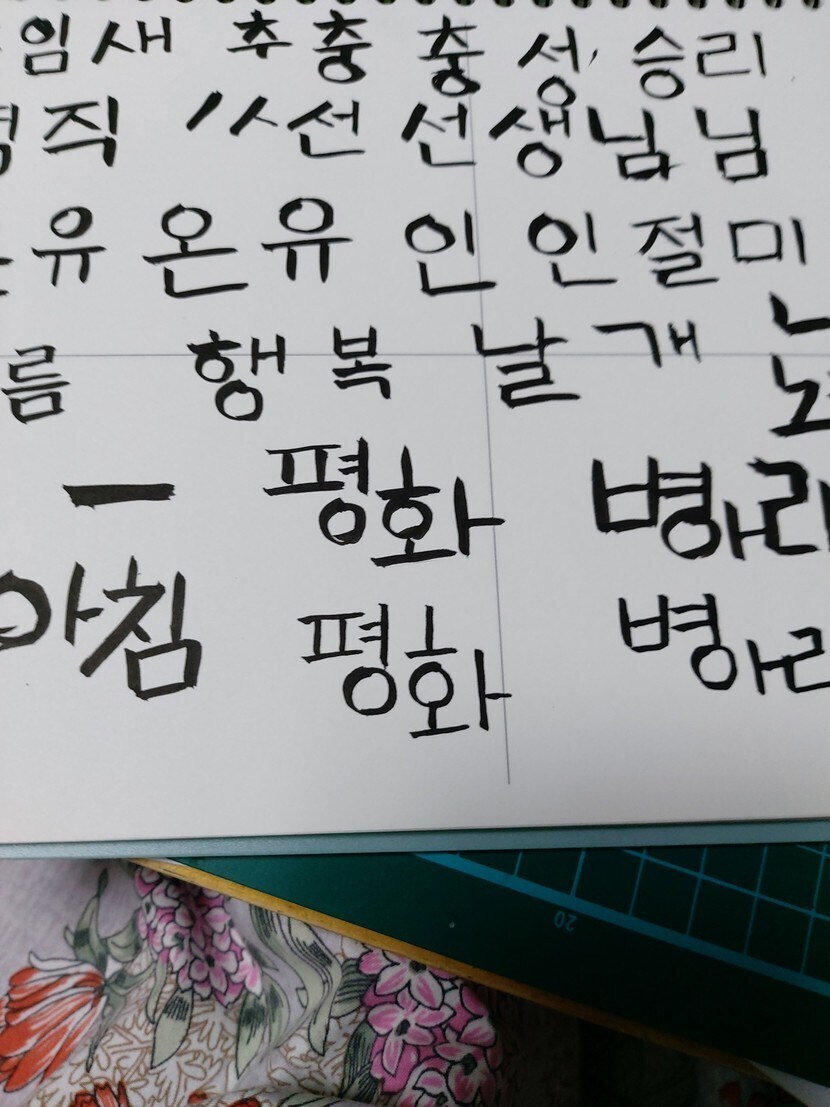 임새 추충 충성, 승리
직 선 선생님님
유 온유 인 인절미
름 행복 날개
ㅡ 평화 병아리
아침 평화 병아리
20